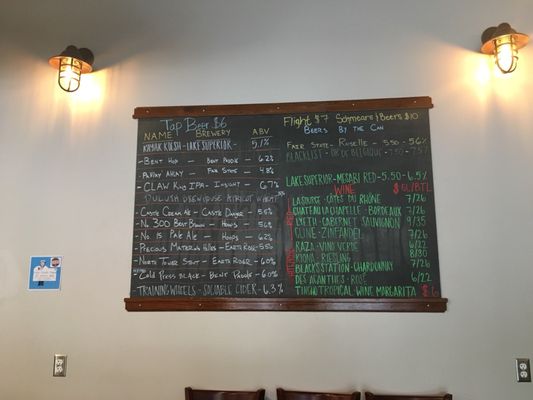 Tap Beer $6
NAME BREWERY ABV
KAYAK KOLSH - LAKE SUPERIOR - 5.1%
- BENT HOP - BENT PADDLE - 6.2%
- PARKAY AWAY - FAIR STATE - 4.8%
- CLAW KING IPA - INSIGHT - 6.7%
DULUTH BREWHOUSE APRICOT WHEAT
- CASTLE CREAM ALE - CASTLE DANGER - 5.5%
- NO. 300 BEST BROWN - HOOPS
- NO. 15 PALE ALE - HOOPS
- PRECIOUS MATERIAL HELLES - EARTH RIDER - 5.5%
- NORTH TOWER STOUT - EARTH RIDER - 6.0%
- COLD PRESS BLACK - BENT PADDLE - 6.0%
- TRAINING WHEELS - SOCIABLE CIDER - 6.3%
Flight $7 Schmears & Beers $10
BEERS BY THE CAN
FAIR STATE - ROSELLE - 5.50 - 5.6%
BLACKLIST - OR DE BELGIQUE - 7.50 - 7.5%
LAKE SUPERIOR - MESABI RED - 5.50 - 6.5%
WINE $ GL/BTL
LA SOURCE - CÔTES DU RHÔNE 7/26
CHATEAU LA CHAPELLE - BORDEAUX 7/26
LYETH - CABERNET SAUVIGNON 9/35
CLINE - ZINFANDEL 7/26
RAZA - VINO VERDE 6/22
KIONA - RIESLING 8/30
BLACK STATION - CHARDONNAY 7/26
DES ACANTHES - ROSÉ 6/22
TINCHO TROPICAL - WINE MARGARITA $6